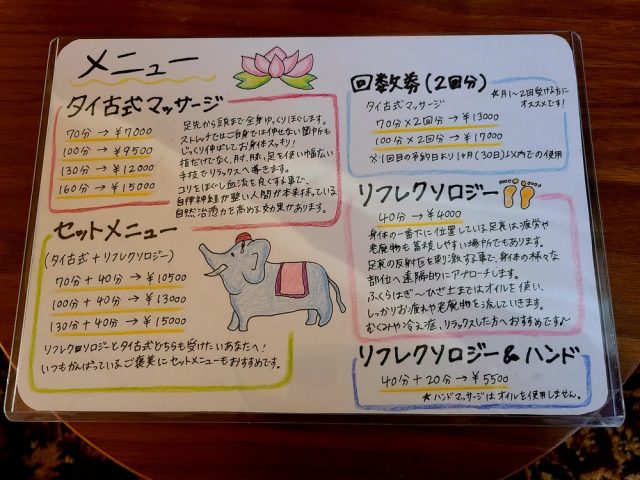 メニュー
タイ古式マッサージ
70分→¥7000
100分→¥9500
130分→¥12000
160分→¥15000
足先から頭まで全身ゆっくりほぐします。
ストレッチではご自身では伸ばせない箇所も
じっくり伸ばしてお身体スッキリ!
指だけでなく、肘、膝、足を使い幅広い
手技でリラックスへ導きます。
コリをほぐし血流を良くする事で、
自律神経が整い人間が本来持っている
自然治癒力を高める効果があります。
セットメニュー
(タイ古式+リフレクソロジー)
70分+40分→¥10500
100分+40分→¥13000
130分+40分→¥15000
リフレクソロジーとタイ古式どちらも受けたいあなたへ!
いつもがんばっているご褒美にセットメニューもおすすめです。
回数券(2回分)
★月1~2回受ける方に
オススメです!
タイ古式マッサージ
70分×2回分→¥13000
100分×2回分→¥17000
※1回目の予約日より1ヶ月(30日)以内での使用
リフレクソロジー
40分→¥4000
身体の一番下に位置している足裏は疲労や
老廃物も蓄積しやすい場所でもあります。
足裏の反射区を刺激する事で、身体の様々な
部位へ遠隔的にアプローチします。
ふくらはぎ~ひざ上まではオイルを使い、
しっかりお疲れや老廃物を流していきます。
むくみや冷え症、リラックスした方へおすすめです♪
リフレクソロジー&ハンド
40分+20分→¥5500
★ハンドマッサージはオイルを使用しません。